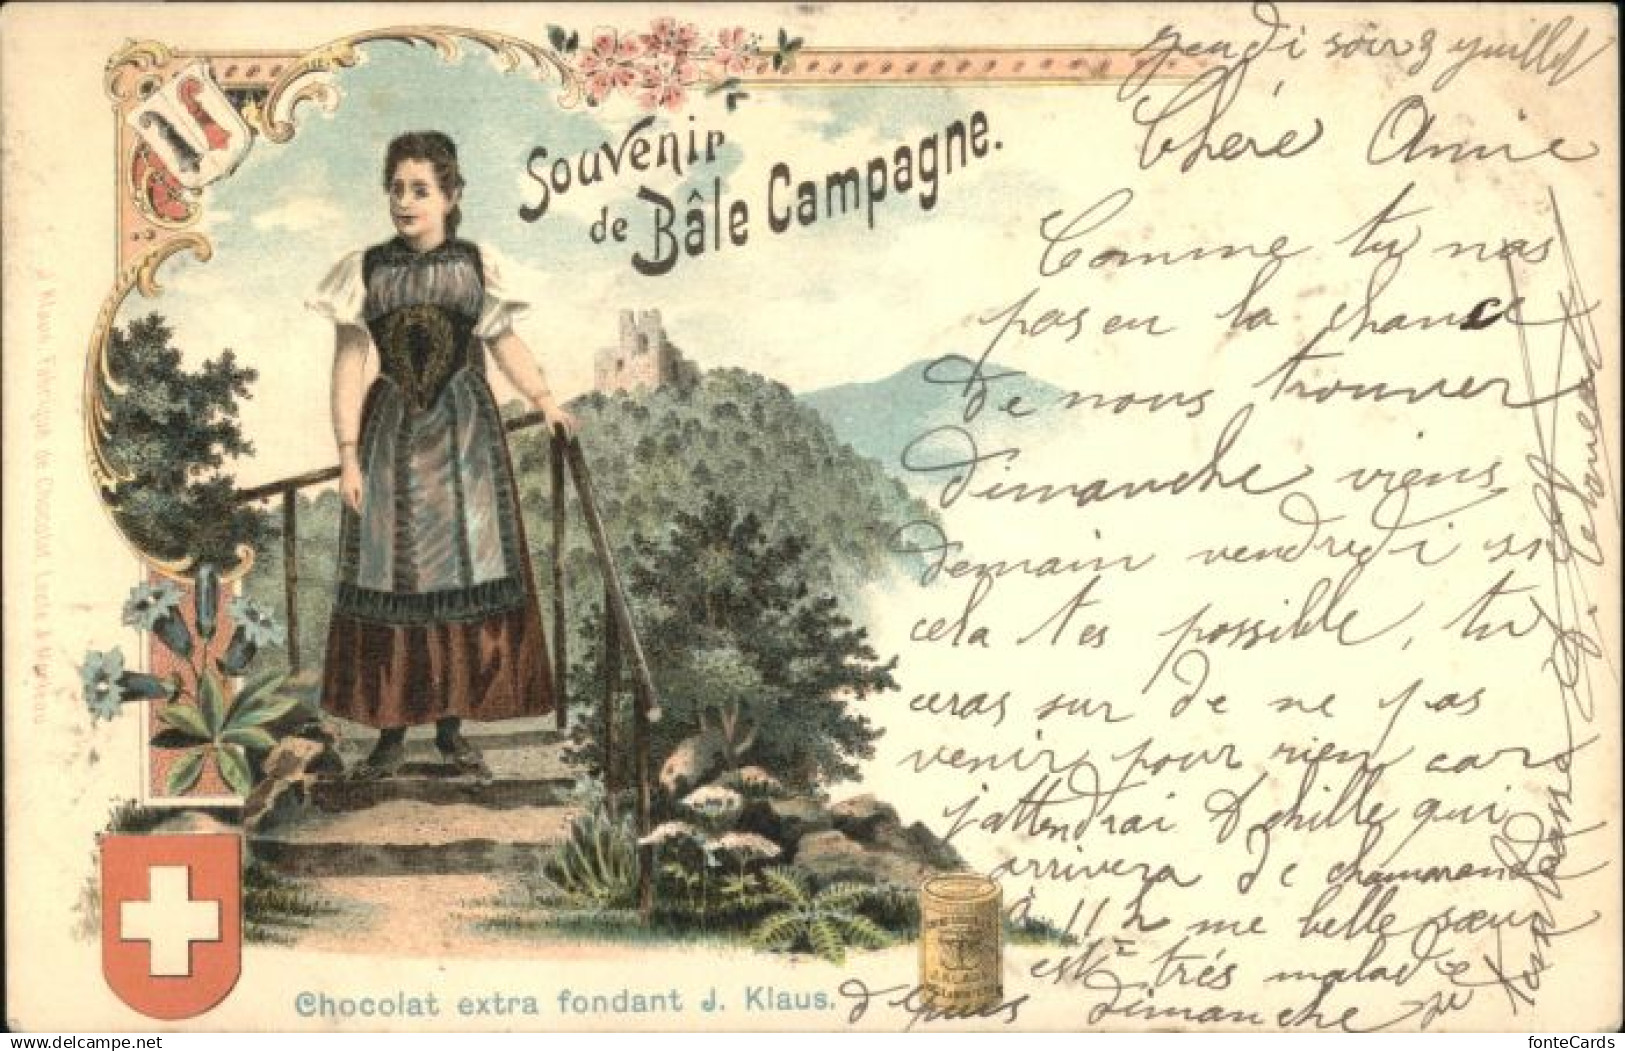 Souvenir
de Bâle Campagne.
jeudi soir 3 juillet
Chère Annie
Comme tu nas
pas eu la chance
de nous trouver
dimanche viens
demain vendredi si
cela t'es possible, tu
ceras sur de ne pas
venir pour rien car
j'attendrai Achille qui
arrivera de
à 11 h me belle sœur
est très malade
depuis dimanche je
t'embrasse
Chocolat extra fondant J. Klaus.
J. Klaus, Fabrique de Chocolat, Locle & Morteau
fonteCards